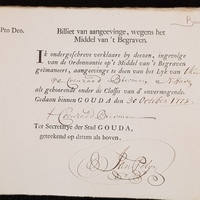 Pro Deo.
Billiet van aangeevinge, wegens het
Middel van 't Begraven.
Ik ondergeschreve verklaare by dezen, ingevolge
van de Ordonnantie op 't Middel van 't Begraven
geëmaneert, aangeevinge te doen van het Lyk van
als gehoorende onder de Classis van d' onvermogende.
Gedaan binnen GOUDA, den 30 October 177
Ter Secretarye der Stad GOUDA,
geteekend op datum als boven.